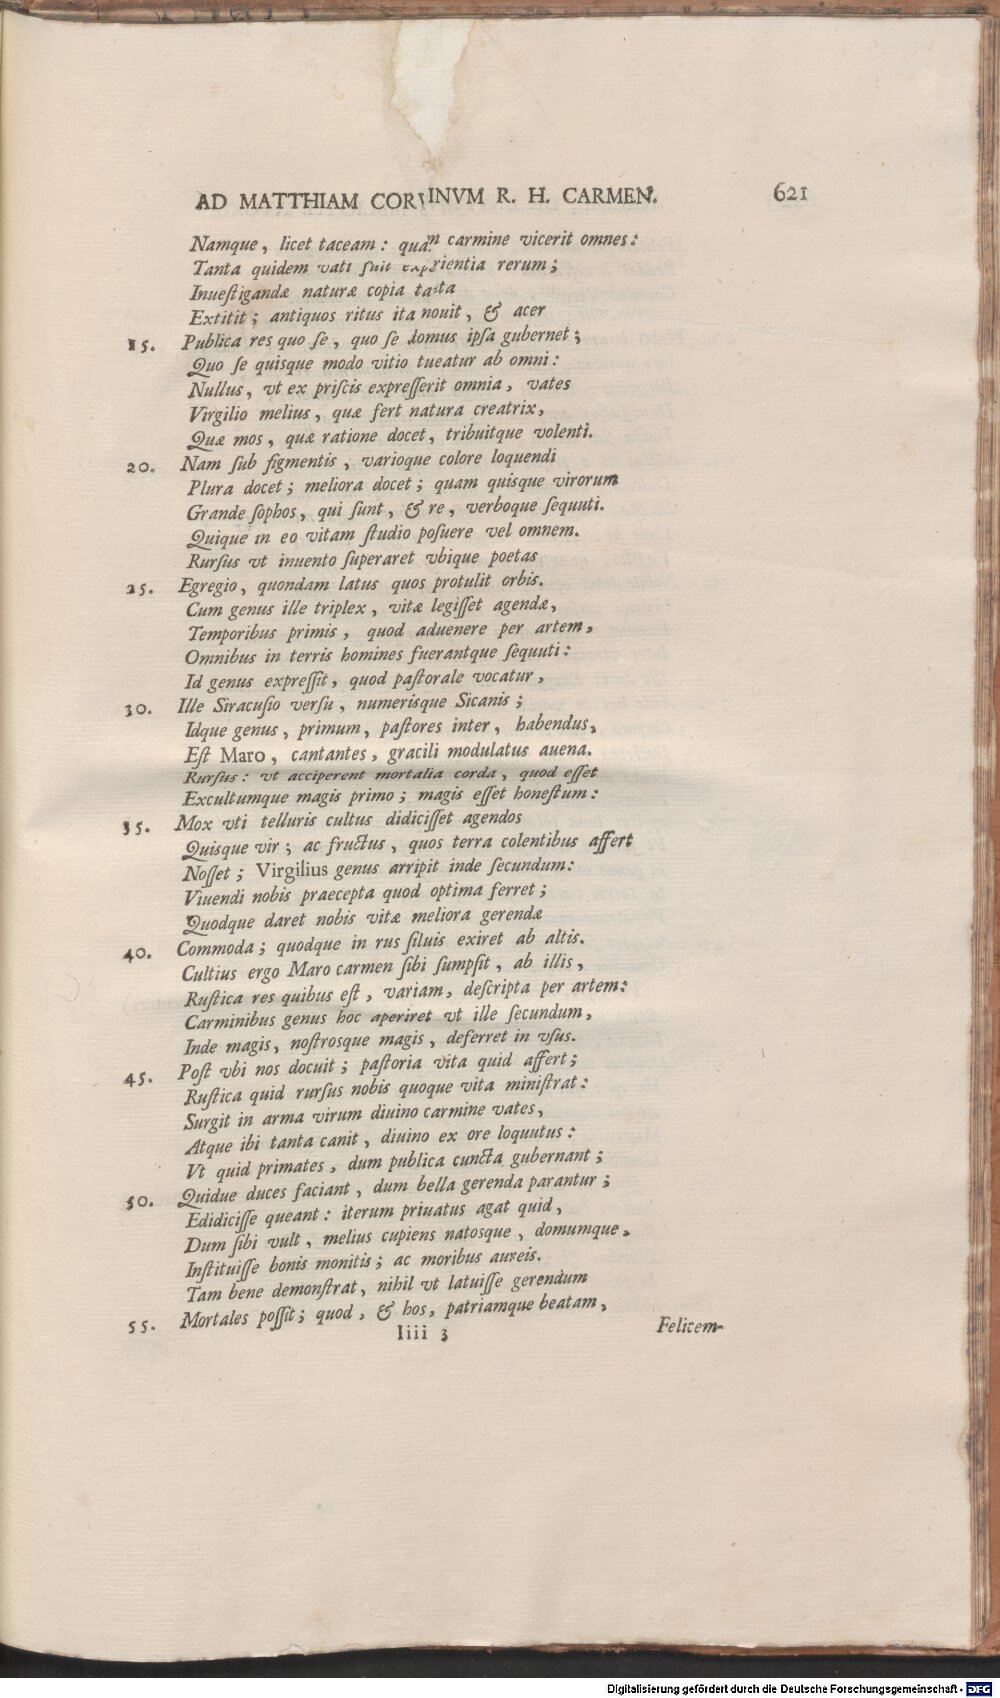 AD MATTHIAM CORVINVM R. H. CARMEN. 621
Namque, licet taceam: quam carmine vicerit omnes:
Tanta quidem vati fuit experientia rerum;
Inueſtigandæ naturæ copia tanta
Extitit; antiquos ritus ita nouit, & acer
15. Publica res quo ſe, quo ſe domus ipſa gubernet;
Quo ſe quisque modo vitio tueatur ab omni:
Nullus, vt ex priſcis expreſſerit omnia, vates
Virgilio melius, quæ fert natura creatrix,
Quæ mos, quæ ratione docet, tribuitque volenti.
20. Nam ſub figmentis, varioque colore loquendi
Plura docet; meliora docet; quam quisque virorum
Grande ſophos, qui ſunt, & re, verboque ſequuti.
Quique in eo vitam ſtudio poſuere vel omnem.
Rurſus vt inuento ſuperaret vbique poetas
25. Egregio, quondam latus quos protulit orbis.
Cum genus ille triplex, vitæ legiſſet agendæ,
Temporibus primis, quod aduenere per artem,
Omnibus in terris homines fuerantque ſequuti:
Id genus expreſſit, quod paſtorale vocatur,
30. Ille Siracuſio verſu, numerisque Sicanis;
Idque genus, primum, paſtores inter, habendus,
Eſt Maro, cantantes, gracili modulatus auena.
Rurſus: vt acciperent mortalia corda, quod eſſet
Excultumque magis primo; magis eſſet honeſtum:
35. Mox vti telluris cultus didiciſſet agendos
Quisque vir; ac fructus, quos terra colentibus affert
Noſſet; Virgilius genus arripit inde ſecundum:
Viuendi nobis praecepta quod optima ferret;
Quodque daret nobis vitæ meliora gerendæ
40. Commoda; quodque in rus ſiluis exiret ab altis.
Cultius ergo Maro carmen ſibi ſumpſit, ab illis,
Ruſtica res quibus eſt, variam, deſcripta per artem:
Carminibus genus hoc aperiret vt ille ſecundum,
Inde magis, noſtrosque magis, deferret in vſus.
45. Poſt vbi nos docuit; paſtoria vita quid affert;
Ruſtica quid rurſus nobis quoque vita miniſtrat:
Surgit in arma virum diuino carmine vates,
Atque ibi tanta canit, diuino ex ore loquutus:
Vt quid primates, dum publica cuncta gubernant;
50. Quidue duces faciant, dum bella gerenda parantur;
Edidiciſſe queant: iterum priuatus agat quid,
Dum ſibi vult, melius cupiens natosque, domumque,
Inſtituiſſe bonis monitis; ac moribus aureis.
Tam bene demonſtrat, nihil vt latuiſſe gerendum
55. Mortales poſſit; quod, & hos, patriamque beatam,
Iiii 3 Felicem-
Digitalisierung gefördert durch die Deutsche Forschungsgemeinschaft - DFG